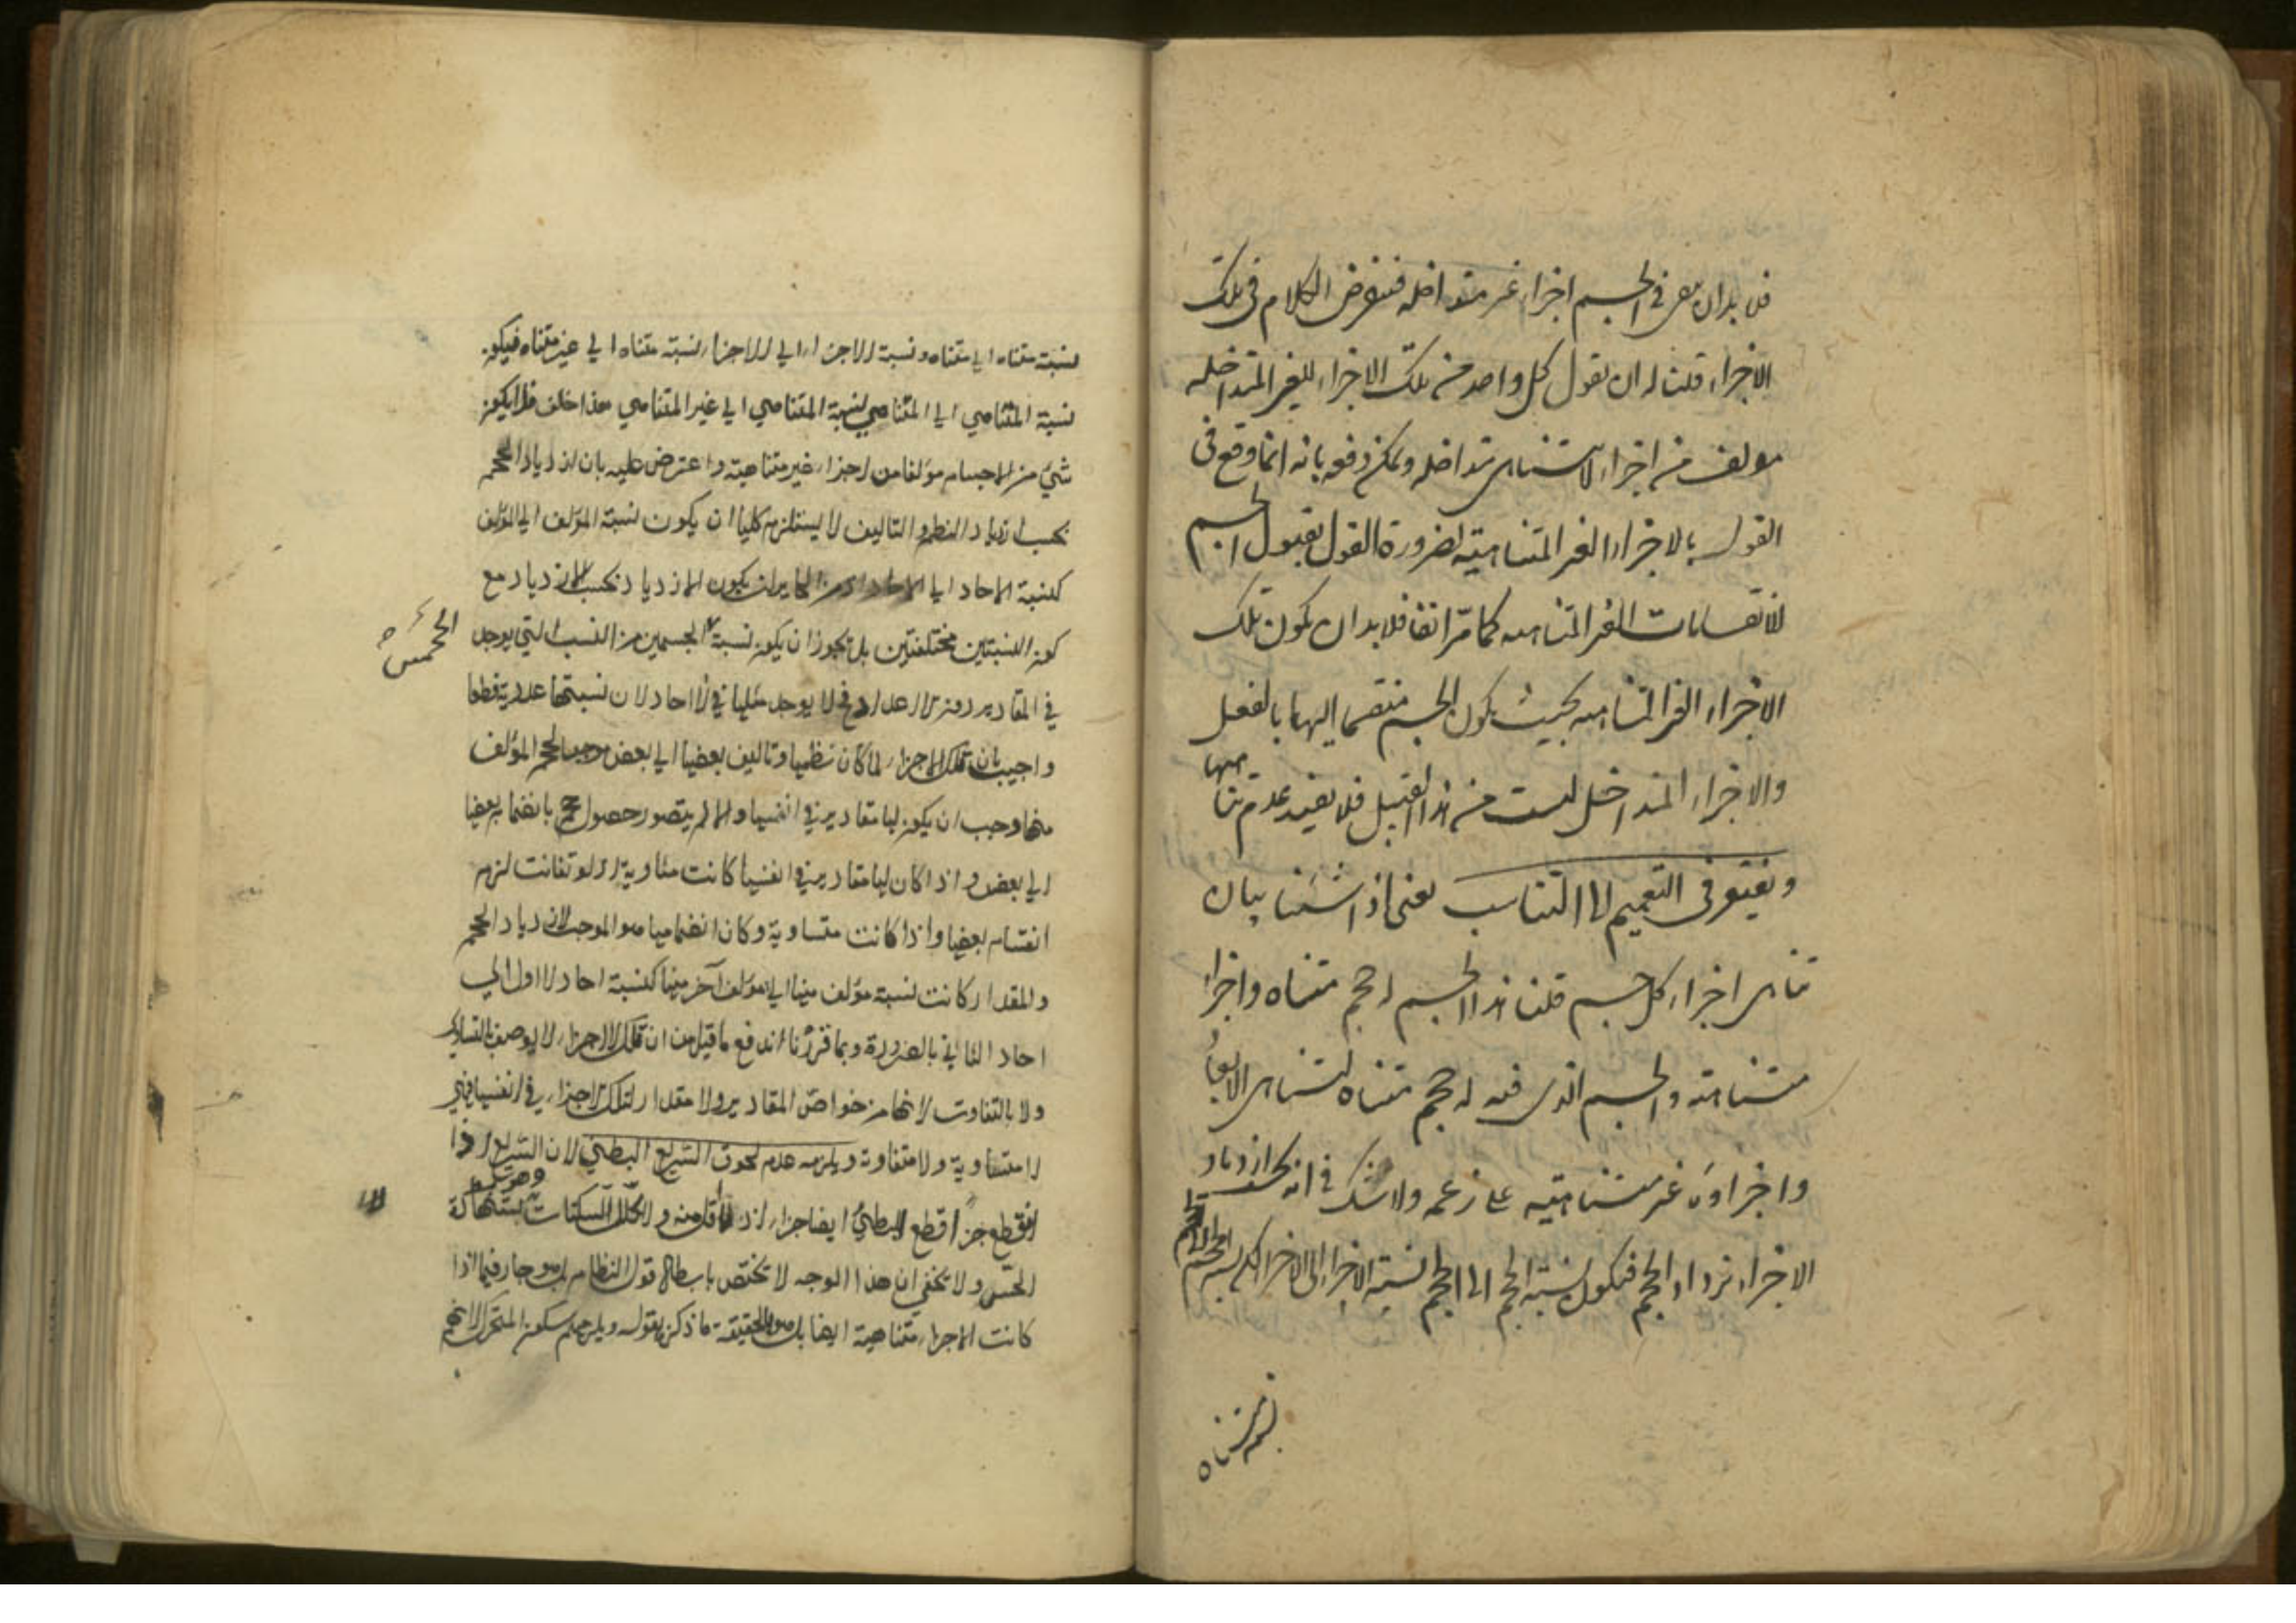 فلا بد ان يعى في الجسم اجزاء غير متداخله فنفرض الكلام فى تلك
الاجزاء قلت له ان يقول كل واحد من تلك الاجزاء الغير المتداخله
مولف من اجزاء لا تتناهى متداخله ويمكن دفعه بانه انما وقع فى
القول بالاجزاء الغير المتناهيته لضرورة القول بقبول الجسم
الانقسامات الغير المتناهيه كما مرّ انفا فلابد ان يكون تلك
الاجزاء الغير المتناهيه بحيث يكون الجسم منقسما اليها بالفعل
والاجزاء المتداخل ليست من هذا القبيل فلا يفيد عدم تناهيها
ويفتقر فى التعميم الى التناسب يعنى اذا شئنا بيان
تناهى اجزاء كل جسم قلنا هذا الجسم له حجم متناه واجزا
متناهيته والجسم الذى فيه له حجم متناه لتناهى الابعاد
واجزاؤه غير متناهيته على زعمه ولا شك في انه بحسب ازدياد
الاجزاء يزداد الحجم فيكون نسبة الحجم الى الحجم نسبة الاجزاء الى الاجزاء لكن نسبة الحجم الى الحجم
نسبة متناه
نسبة متناه الى متناه ونسبة الاجزاء الى الاجزاء نسبة متناه الى غير متناه فيكون
نسبة المتناهي الى المتناهي نسبة المتناهي الى غير المتناهي هذا خلف فلا يكون
شيئ من الاجسام مؤلفا من اجزاء غير متناهية واعترض عليه بان ازدياد الحجم
بحسب ازدياد النظم والتاليف لا يستلزم كليا ان يكون نسبة المؤلف الى المؤلف
كنسبة الاحاد الى الاحاد اذ من الجايز ان يكون الازدياد بحسب الازدياد مع
كون النسبتين مختلفتين بل يجوز ان يكون نسبة الجسمين من النسب التي يوجد
في المقادير دون الاعداد فلا يوجد مثلها في الاحاد لان نسبتها عددية قطعا
واجيب بان تلك الاجزاء لما كان نظمها وتاليف بعضها الى بعض موجبا لحجم المؤلف
منها وجب ان يكون لها مقادير في انفسها والا لم يتصور حصول حجم بانضمام بعضها
الى بعض واذا كان لها مقادير في انفسها كانت متساوية اذ لو تفاوتت لزم
انقسام بعضها واذا كانت متساوية وكان انضمامها هو الموجب لازدياد الحجم
والمقدار كانت نسبة مؤلف منها الى مؤلف آخر منها كنسبة احاد الاول الى
احاد الثاني بالضرورة وبما قررنا اندفع ما قيل من ان تلك الاجزاء لا يوصف بالتساوي
ولا بالتفاوت لانهما من خواص المقادير ولا مقدار لتلك الاجزاء في انفسها فهي
لا متساوية ولا متفاوتة ويلزمه عدم لحوق السريع البطئ لان السريع اذا
قطع جزءا قطع البطئ ايضا جزاء اذ لا اقل منه و تخلل السكنات يستنها كذبه
الحس ولا يخفى ان هذا الوجه لا يختص بابطال قول النظام بل هو جار فيما اذا
كانت الاجزاء متناهية ايضا بل هو بالحقيقة ما ذكره بقوله ويلزمهم سكون المتحرك لانهم